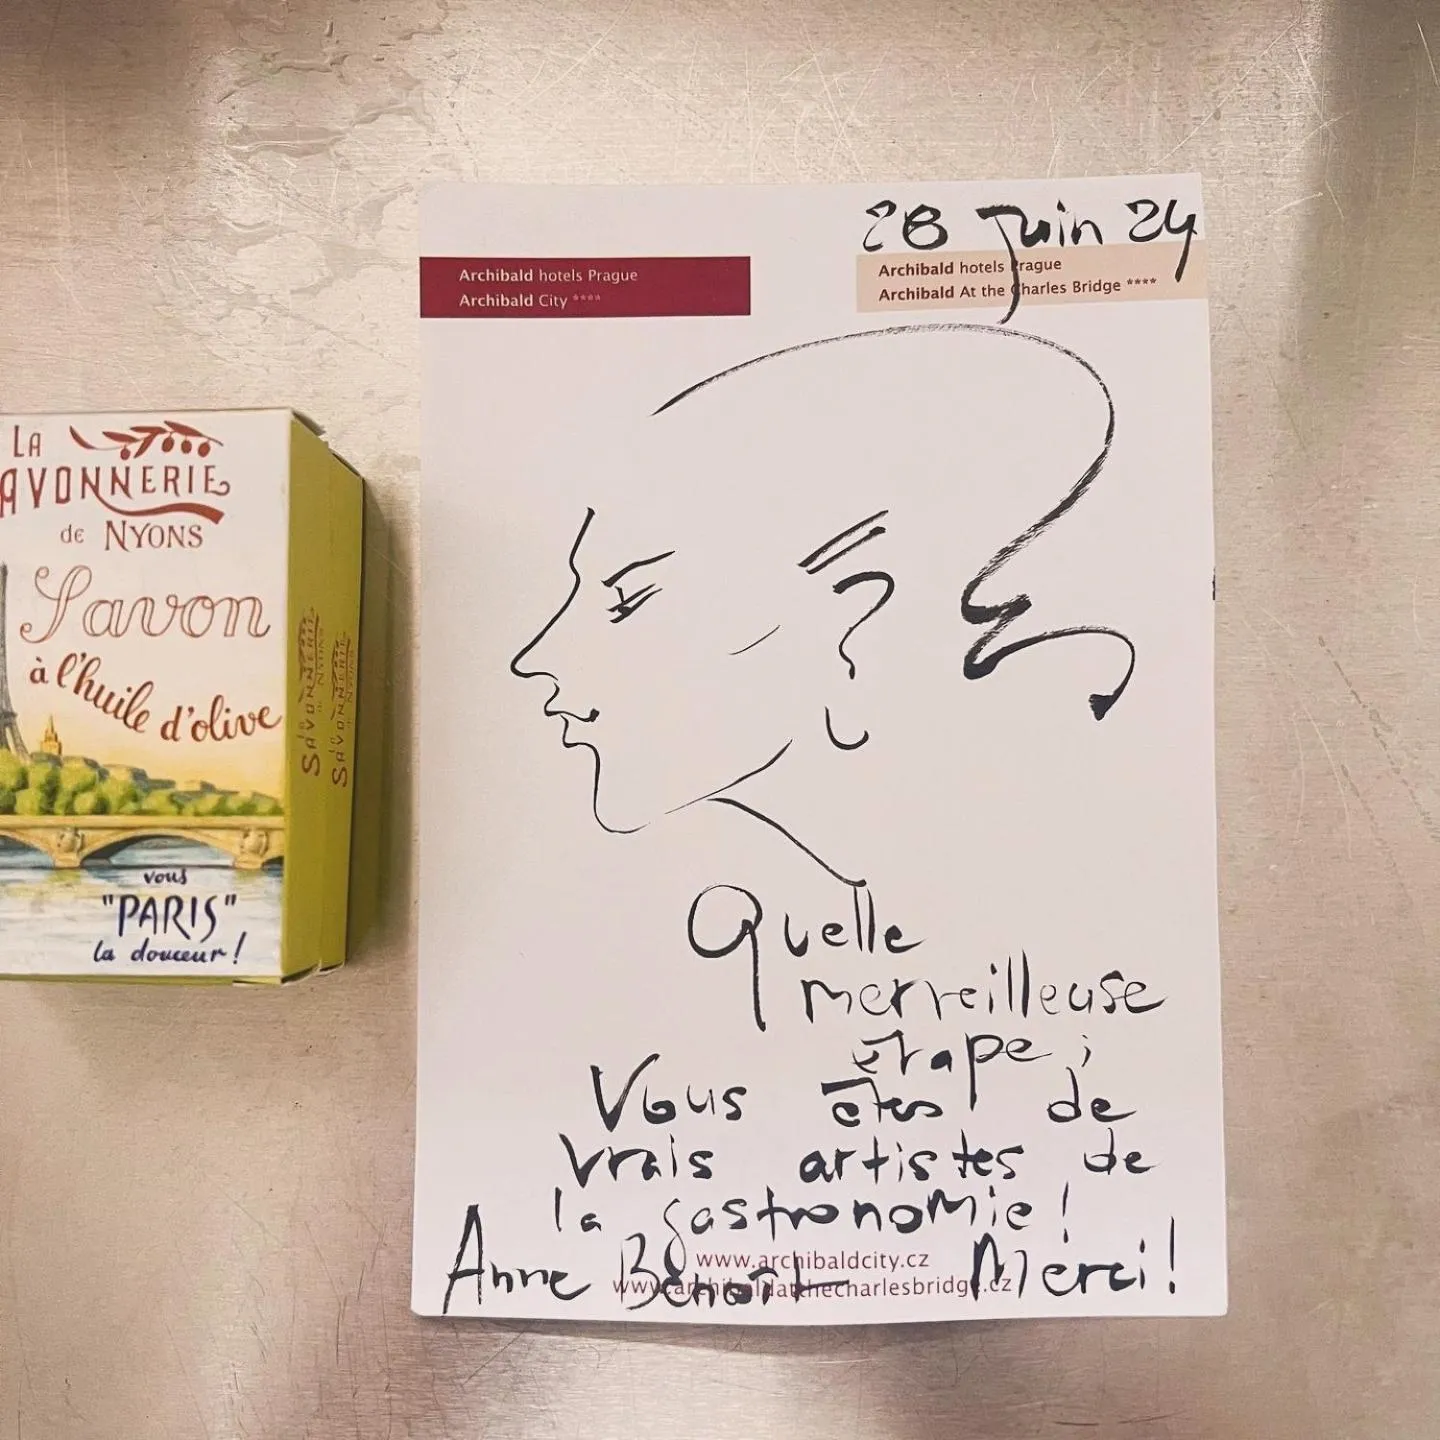 LA
AVONNERIE
de NYONS
Savon
à l'huile d'olive
vous
"PARIS"
la douceur!
SAVONNERIE
de NYONS
SAVONNERIE
de NYONS
28 Juin 24
Archibald hotels Prague
Archibald City ****
Archibald hotels Prague
Archibald At the Charles Bridge ****
Quelle
merveilleuse
étape ;
Vous êtes de
vrais artistes de
la gastronomie !
Anne Benoît Merci !
www.archibaldcity.cz
www.archibaldatthecharlesbridge.cz